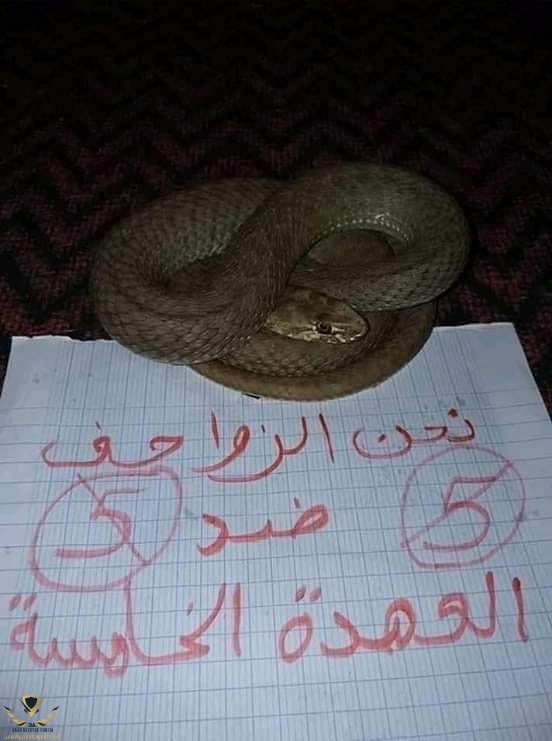 نحن الزواحف
5 ضد 5
العهدة الخامسة